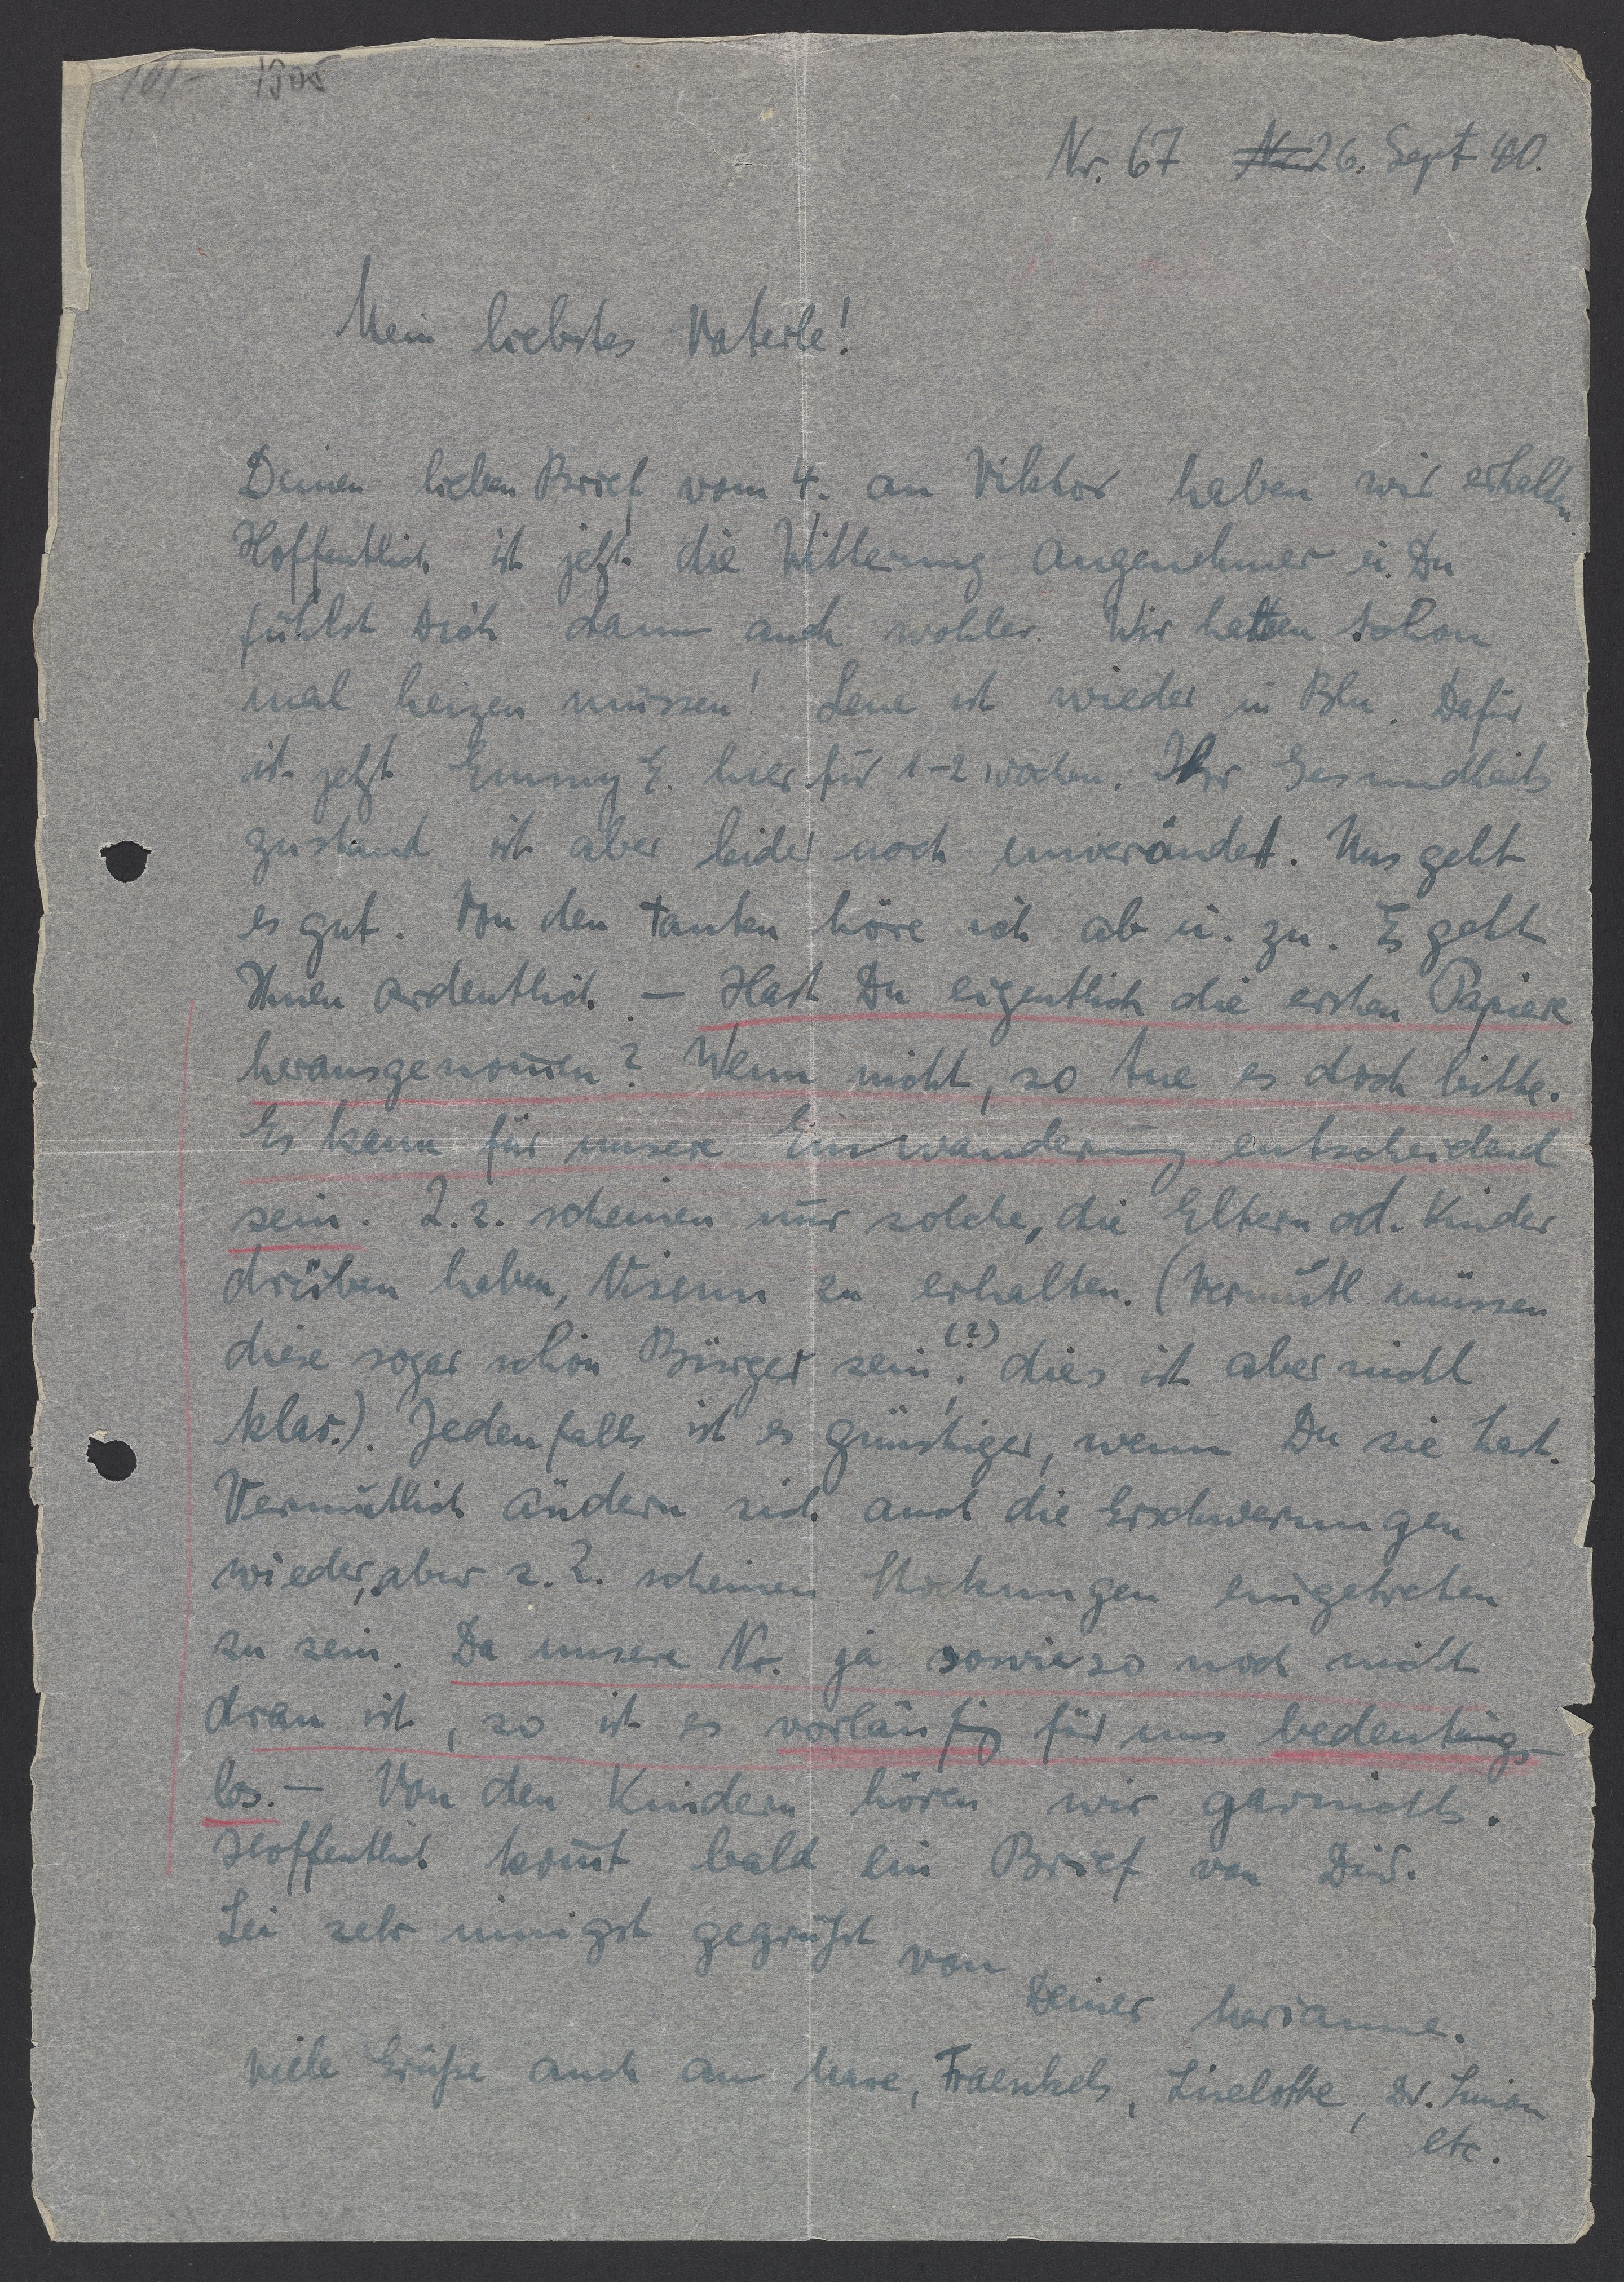 Nr. 67 26. Sept 40.
Mein liebstes Vaterle!
Deinen lieben Brief vom 4. an Viktor haben wir erhalten.
Hoffentlich ist jetzt die Witterung angenehmer u. Du
fühlst Dich dann auch wohler. Wir hatten schon
mal heizen müssen! Lene ist wieder in Bln. Dafür
ist jetzt Emmy E. hier für 1-2 Wochen. Ihr Gesundheits
zustand ist aber leider noch unverändert. Uns geht
es gut. Von den Tanten höre ich ab u. zu. Es geht
Ihnen ordentlich. — Hast Du eigentlich die ersten Papiere
herausgenom̅en? Wenn nicht, so tue es doch bitte.
Es kann für unsere Einwanderung entscheidend
sein. Z.Z. scheinen nur solche, die Eltern od. Kinder
drüben haben, Visum zu erhalten. (Vermutl müssen
diese sogar schon Bürger sein(?), dies ist aber nicht
klar.). Jedenfalls ist es günstiger, wenn Du sie hast.
Vermutlich ändern sich auch die Erschwerungen
wieder, aber z. Z. scheinen Stockungen eingetreten
zu sein. Da unsere Nr. ja sowieso noch nicht
dran ist, so ist es vorläufig für uns bedeutungs-
los. — Von den Kindern hören wir garnichts.
Hoffentlich kom̅t bald ein Brief von Dir.
Sei sehr innigst gegrüßt von
Deiner Marianne.
Viele Grüße auch an Fraenkels, Liselotte, Dr. Simon
etc.